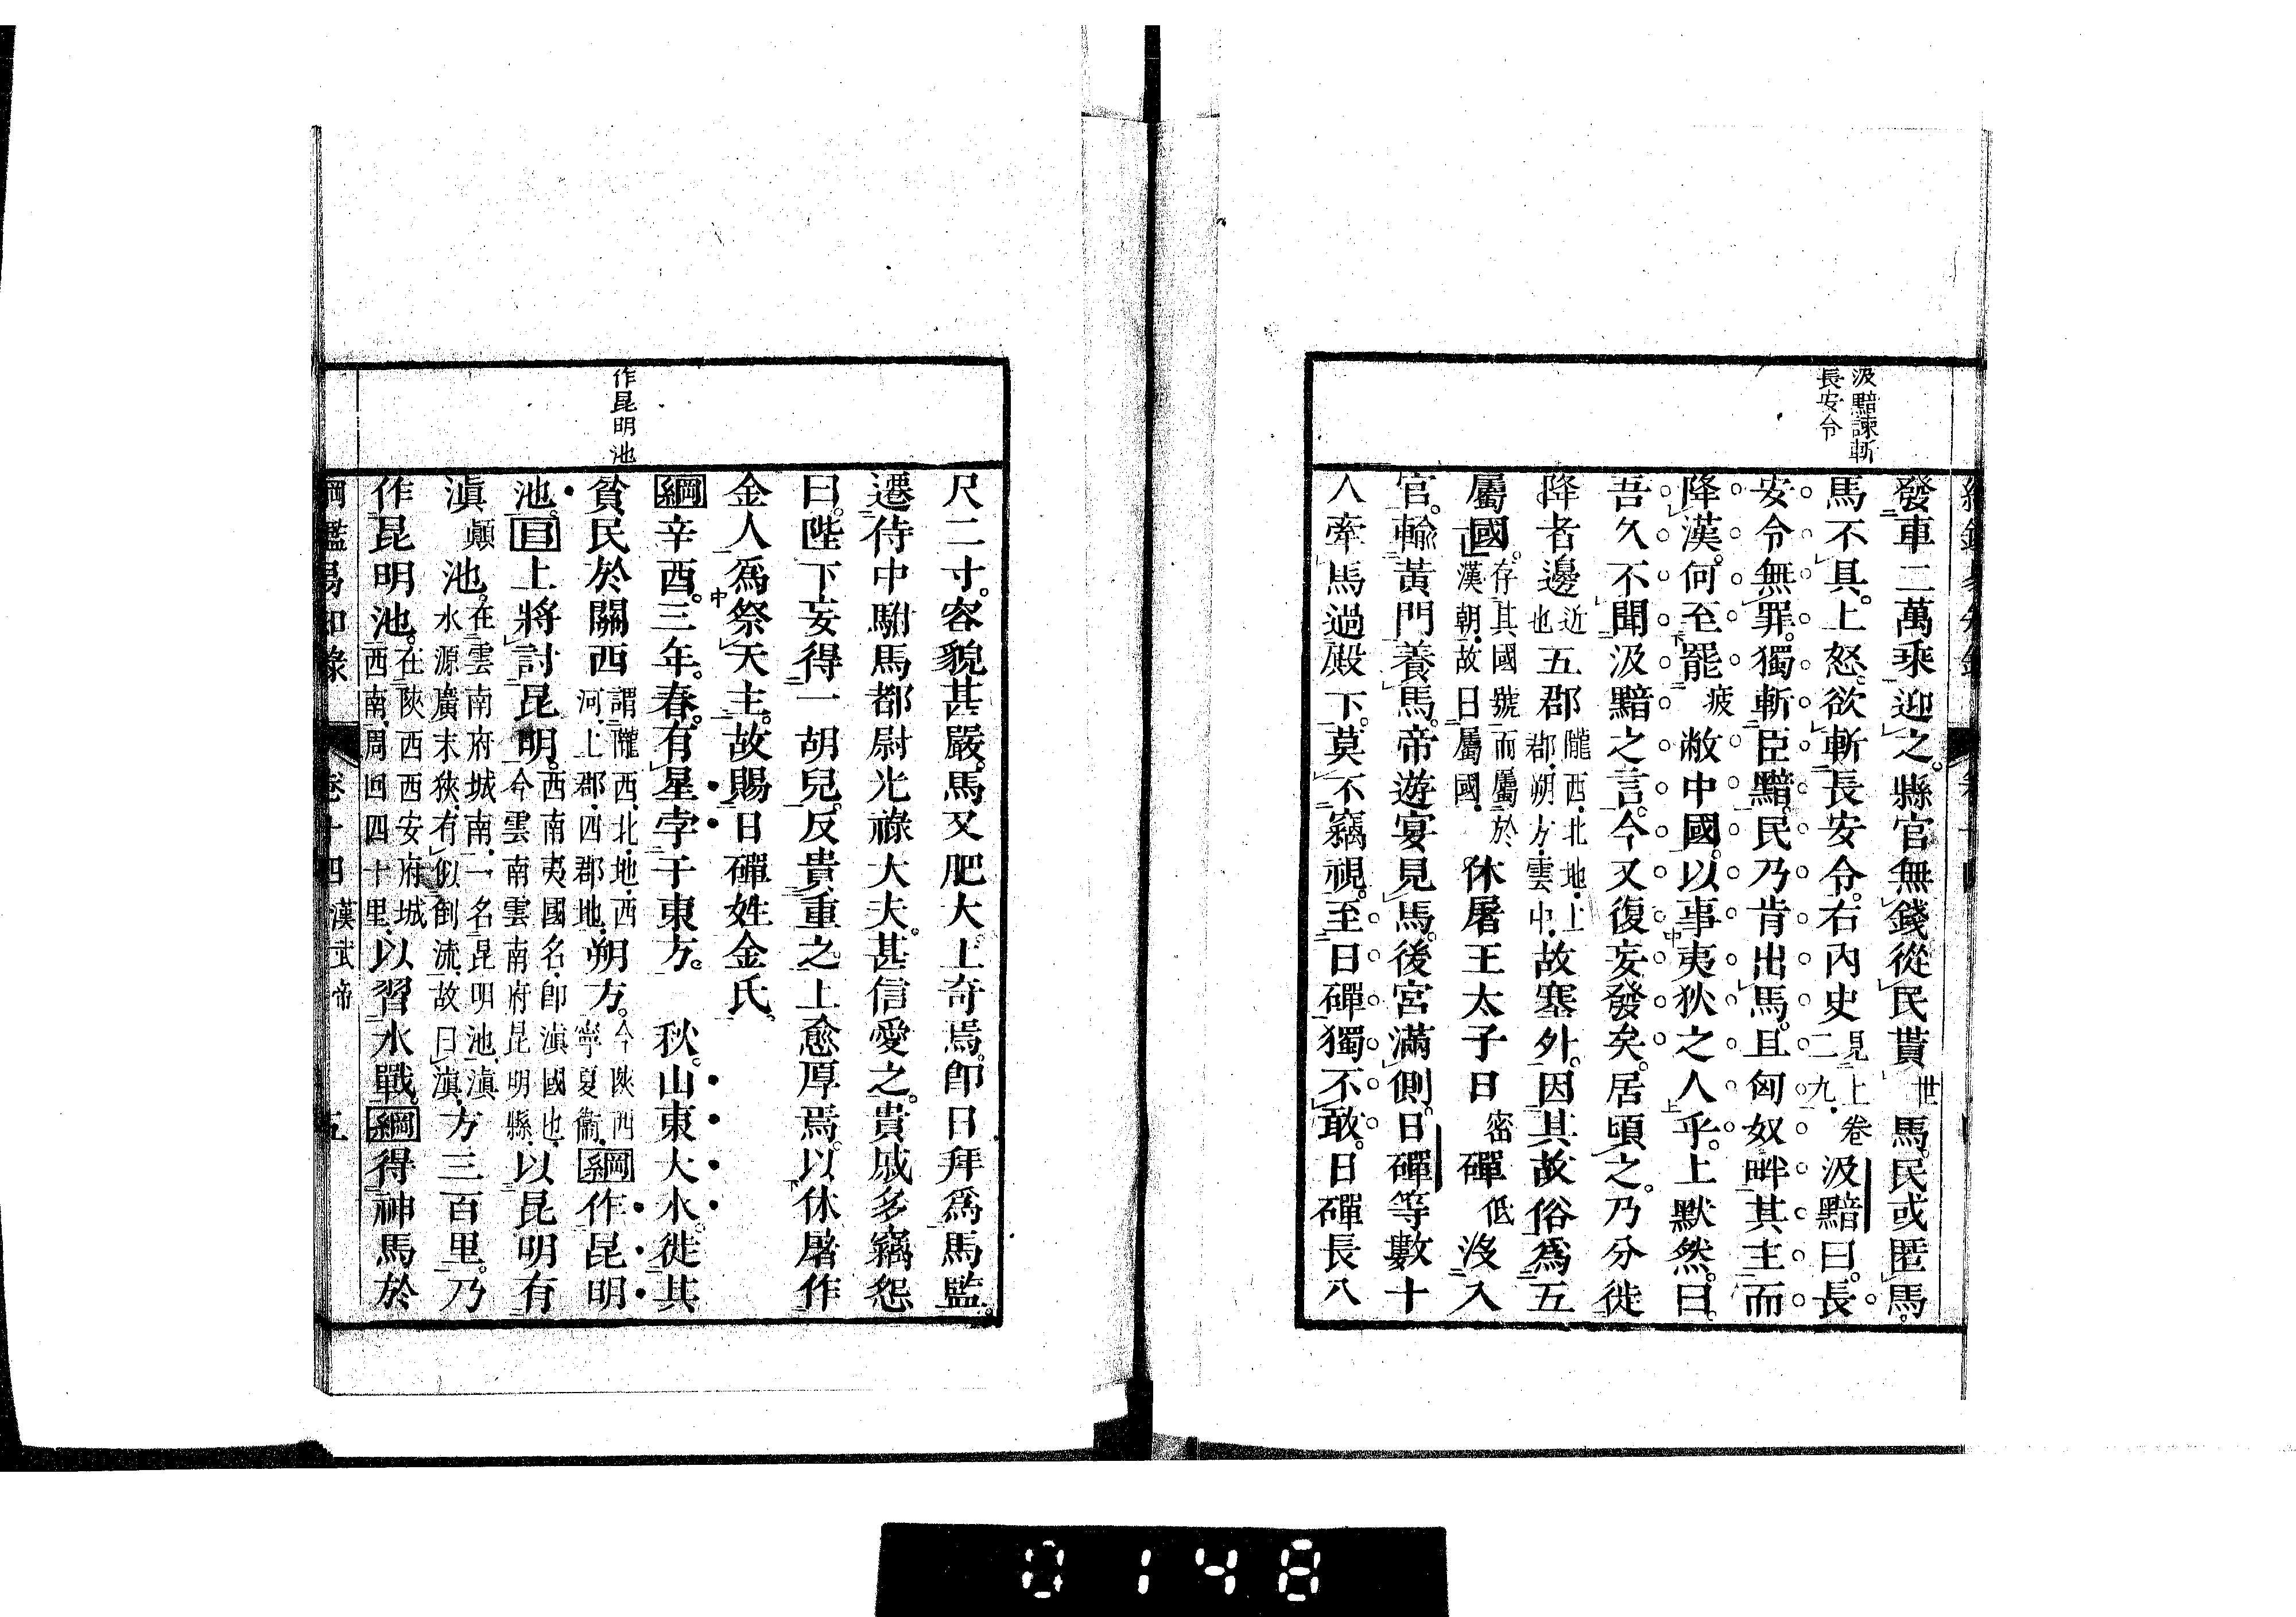 汲黯諫斬
長安令
發車二萬乘迎之。縣官無錢從民貰世馬。民或匿馬。
馬不具。上怒。欲斬長安令。右內史見上卷二九.汲黯曰。長
安令無罪。獨斬臣黯。民乃肯出馬。且匈奴畔其主而
降漢。何至罷疲敝中國。以事夷狄之人乎。上默然。曰。
吾久不聞汲黯之言。今又復妄發矣。居頃之。乃分徙
降者邊近也五郡隴西.北地.上郡.朔方.雲中.故塞外。因其故俗爲五
屬國。存其國號而屬於漢朝.故曰屬國.休屠王太子日密磾低沒入
官。輸黃門養馬。帝遊宴見馬。後宮滿側。日磾等數十
人牽馬過殿下。莫不竊視。至日磾獨不敢。日磾長八
尺二寸。容貌甚嚴。馬又肥大。上奇焉。卽日拜爲馬監。
遷侍中駙馬都尉光祿大夫。甚信愛之。貴戚多竊怨
曰。陛下妄得一胡兒。反貴重之。上愈厚焉。以休屠作
金人爲祭天主。故賜日磾姓金氏。
綱辛酉。三年。春。有星孛于東方。 秋。山東大水。徙其
作昆明池
貧民於關西謂隴西.北地.西河.上郡.四郡地.朔方。今陝西寧夏衞.綱作昆明
池。目上將討昆明。西南夷國名.卽滇國也.今雲南雲南府昆明縣.以昆明有
滇顚池。在雲南府城南.一名昆明池.滇水源廣末狹.有似倒流.故曰滇.方三百里。乃
作昆明池。在陝西西安府城西南.周回四十里.以習水戰。綱得神馬於
綱鑑易知錄 卷十四 漢武帝 五
0148